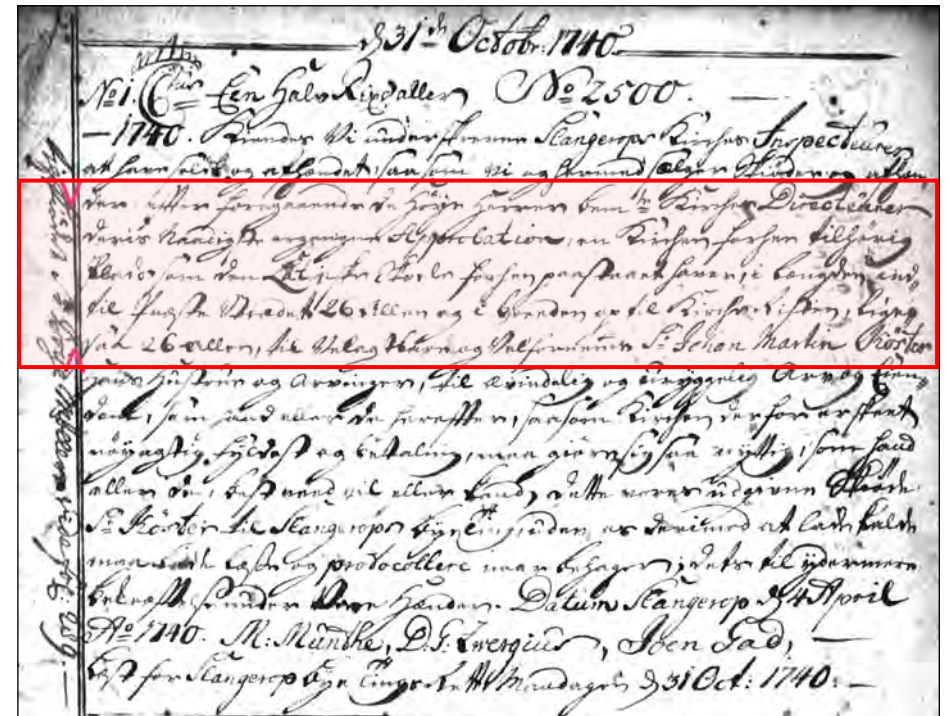 d 31te Octobr: 1740.
No 1. Chr Een Halv Rixdaller No 2500.
— 1740. Kiendes Vi underskrevne Slangerops Kirches Inspecteurer
at have soldt og afhændet, saasom vi og hermed sælger skiøder og afhæn
der efter foregaaende de Høye Herrer bemte Kirches Directeurer
deris Naadigste Approbation, en Kirchen forhen tilhørig
Plads som den Latinske Skole forhen paastaaet haver, i længden ind
til Stædet 26 Allen og i breeden op til Kirche Risten, ligesaa
26 Allen, til Velagtbare og Velfornemme Sr Johan Martin Köster
hans Hustrue og Arvinger, til ævindelig og uryggelig Arv og Eien
dom, som hand eller de herefter, saasom Kirchen derfor er skeet
nøyagtig fyldest og betaling, maa giøre sig saa nyttig, som hand
eller de, best veed vil eller kand, dette vores udgivne Skiøde
Sr Köster til Slangerops Bye Ting uden os derimod at lade kalde
maa lade læse og protocollere naar behager, dets til ydermere
bekræftelse under Vore Hænder. Datum Slangerop d 4 April
Ao 1740. M: Munthe, D. G. Zwergius, Iben Gad,
Læst for Slangerop Bye Tings Rett Mandagen d 31 Oct: 1740. —